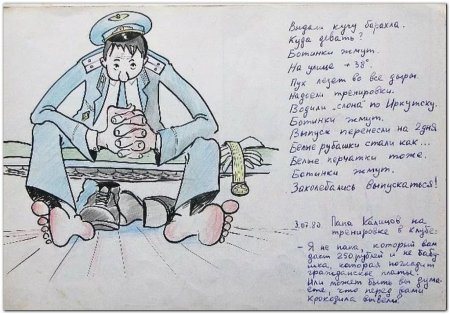 Выдали кучу барахла.
Куда девать?
Ботинки жмут.
На улице +38°.
Пух лезет во все дыры.
Надоели тренировки.
Водили „слона" по Иркутску.
Ботинки жмут.
Выпуск перенесли на 2 дня
Белые рубашки стали как...
Белые перчатки тоже.
Ботинки жмут.
Заколебались выпускаться!
3.07.80 Папа Калицов на
тренировке в клубе:
- Я не папа, который вам
даст 250 рублей и не баб
ушка, которая погладит
гражданское платье.
Или может быть вы дума
ете, что перед вами
крокодила вывели.